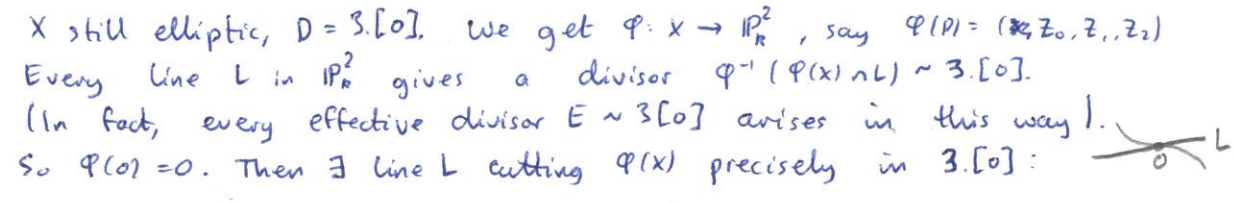 X still elliptic, D = 3.[0]. We get φ: X → ℙ²_k, say φ(P) = (z₀, z₁, z₂)
Every line L in ℙ²_k gives a divisor φ⁻¹(φ(X)∩L) ~ 3.[0].
(In fact, every effective divisor E ~ 3[0] arises in this way).
So φ(0) = 0. Then ∃ line L cutting φ(X) precisely in 3.[0]: 0 L